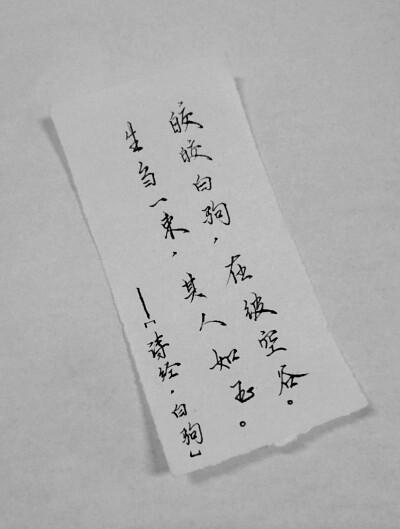 皎皎白驹，在彼空谷。
生刍一束，其人如玉。
——「诗经·白驹」